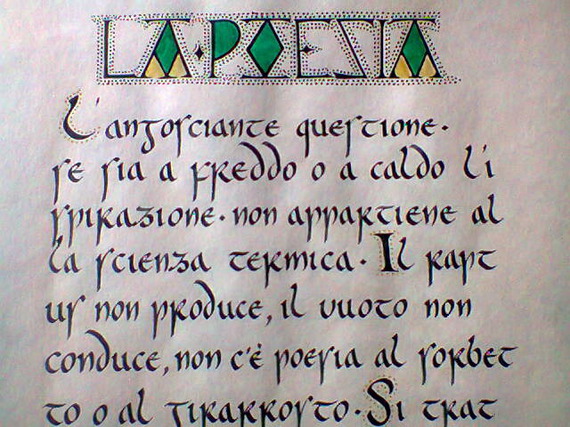 LA·POESIA
L'angosciante questione·
se sia a freddo o a caldo l'i
spirazione·non appartiene al
la scienza termica·Il rapt
us non produce, il vuoto non
conduce, non c'è poesia al sorbet
to o al girarrosto·Si trat